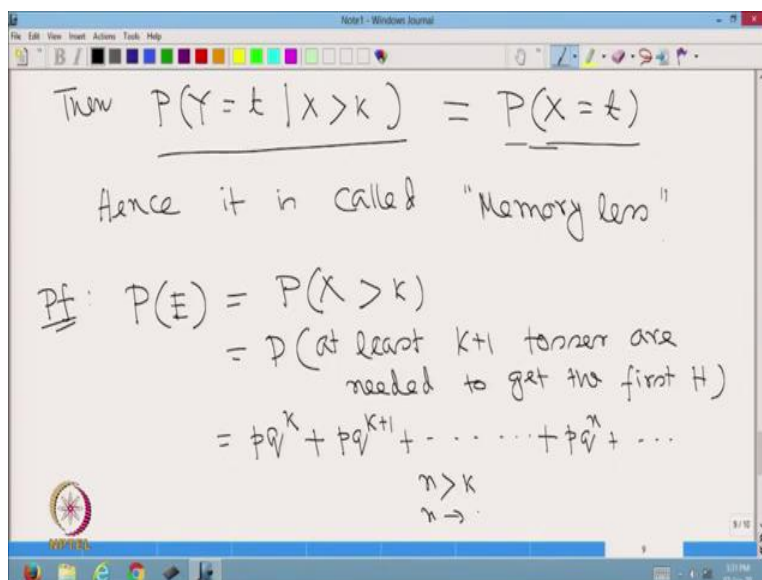 Note1 - Windows Journal
File Edit View Insert Actions Tools Help
Then P(Y = t | X > K) = P(X = t)
Hence it is called "Memory less"
Pf: P(E) = P(X > K)
= P(at least K+1 tosses are
needed to get the first H)
= pq^K + pq^{K+1} + ........ + pq^n + ...
n > K
n → .
NPTEL
9 / 10
9
3:31 PM